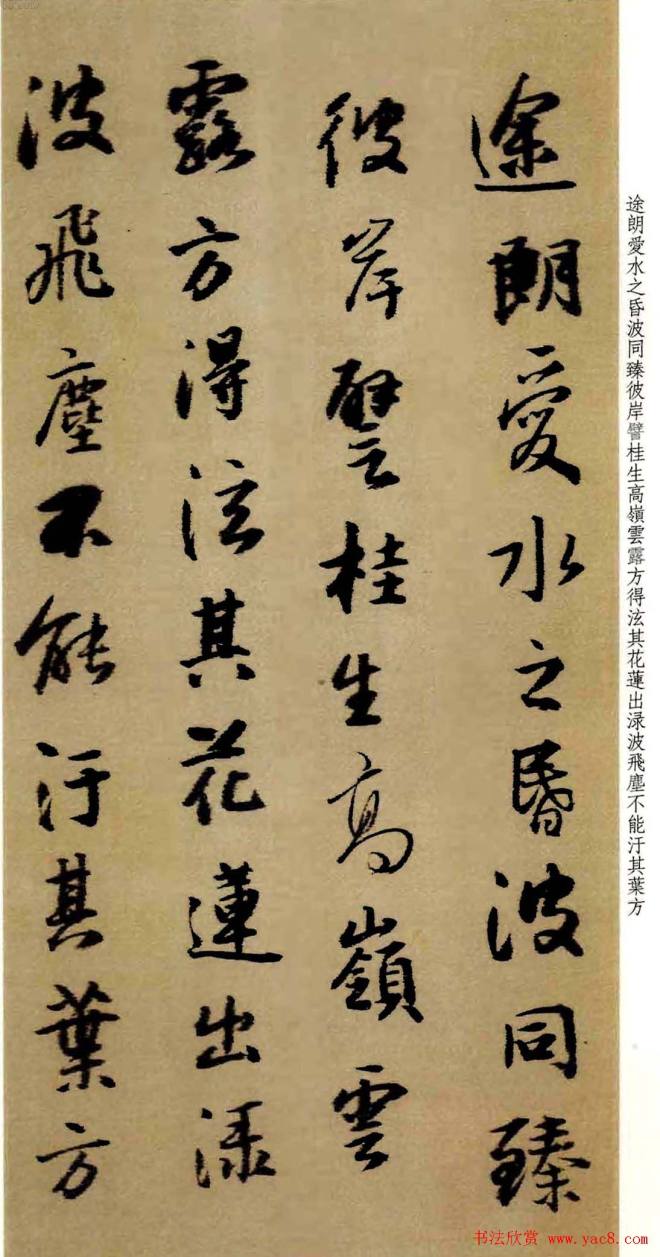 途朗愛水之昏波同臻
彼岸譬桂生高嶺雲
露方得泫其花蓮出淥
波飛塵不能汙其葉方
途朗愛水之昏波同臻彼岸譬桂生高嶺雲露方得泫其花蓮出淥波飛塵不能汙其葉方
书法欣赏 www.yac8.com